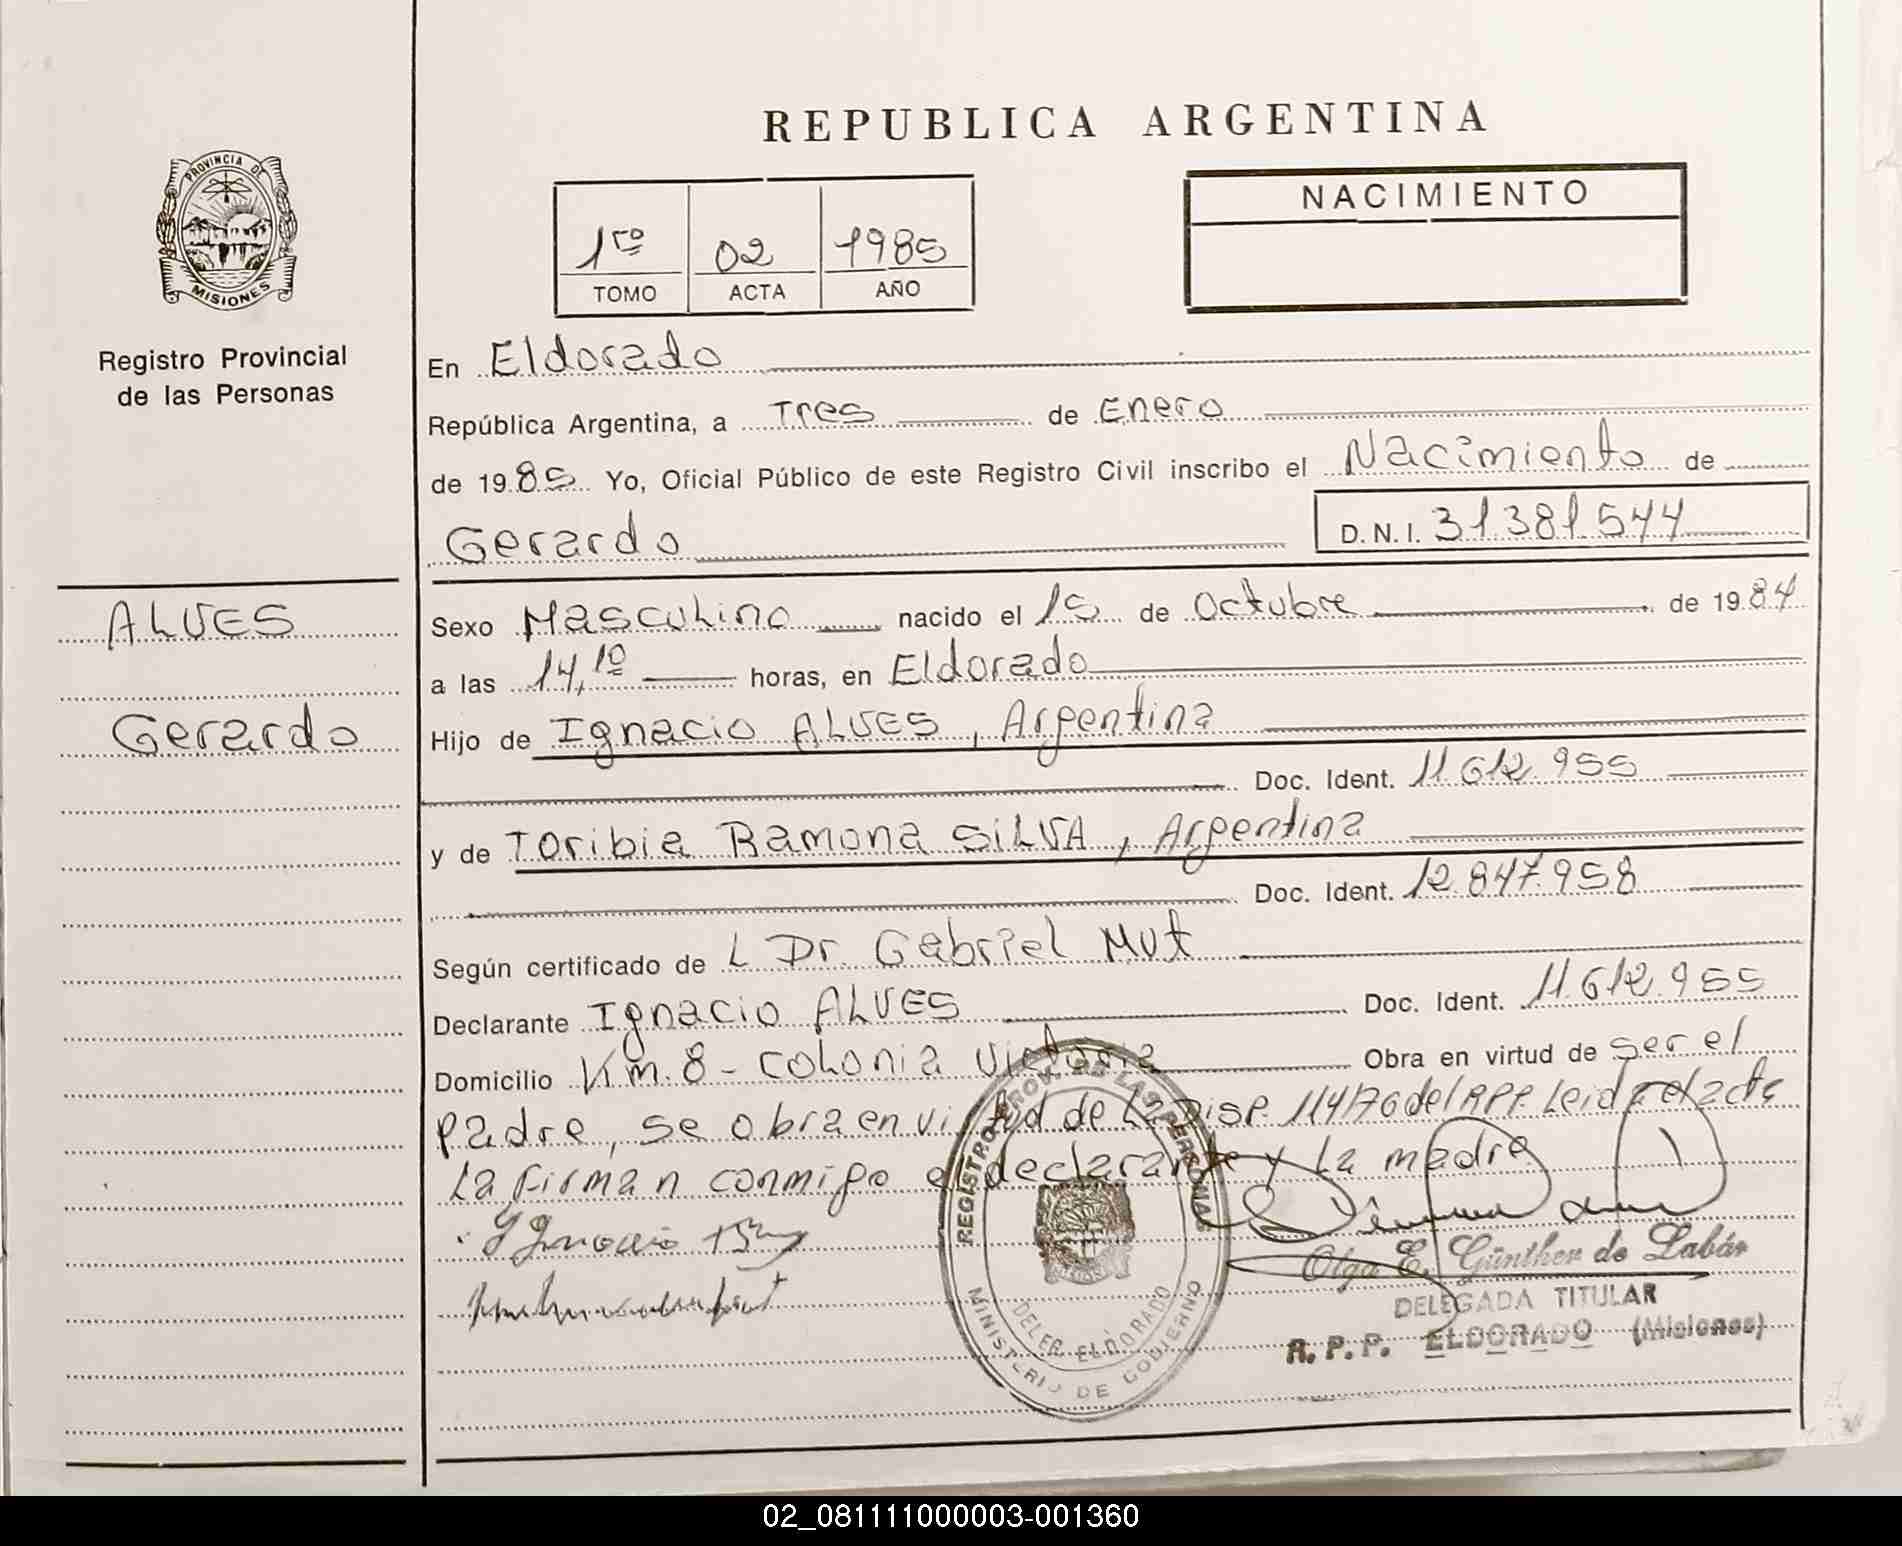 REPUBLICA ARGENTINA
PROVINCIA DE
MISIONES
Registro Provincial
de las Personas
1ro 02 1985
TOMO ACTA AÑO
NACIMIENTO
En Eldorado
República Argentina, a Tres de Enero
de 1985 Yo, Oficial Público de este Registro Civil inscribo el Nacimiento de
Gerardo D.N.I. 31.381.544
ALVES
Gerardo
Sexo Masculino nacido el 15 de Octubre de 1984
a las 14,10 horas, en Eldorado
Hijo de Ignacio ALVES, Argentina
Doc. Ident. 11.612.955
y de Toribia Ramona SILVA, Argentina
Doc. Ident. 12.847.958
Según certificado de L Dr. Gabriel Mut
Declarante Ignacio ALVES Doc. Ident. 11.612.955
Domicilio Km. 8 - Colonia Victoria Obra en virtud de ser el
padre, se obra en virtud de la Disp. 114/76 del RPP. Leida el acta
la firman conmigo el declarante y la madre
REGISTRO PROV. DE LAS PERSONAS
MINISTERIO DE GOBIERNO
DELEG. ELDORADO
Olga E. Günther de Labán
DELEGADA TITULAR
R. P. P. ELDORADO (Misiones)
02_081111000003-001360